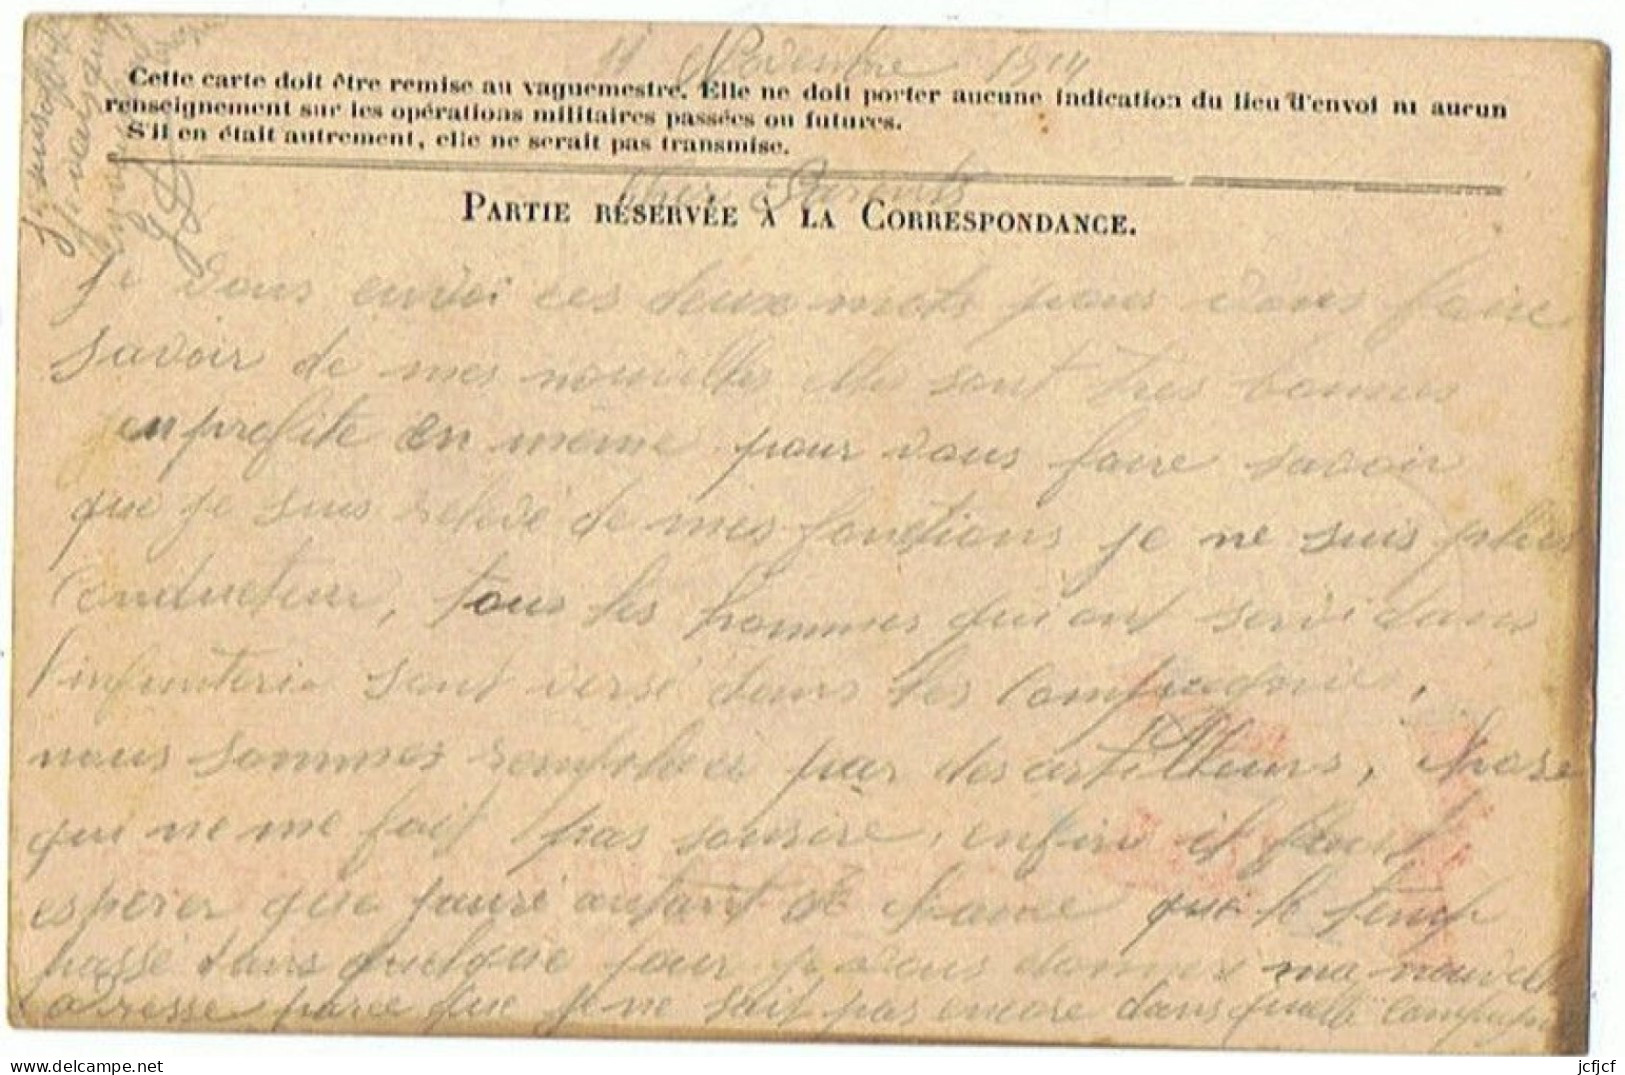 11 Novembre 1914
Cette carte doit être remise au vaguemestre. Elle ne doit porter aucune indication du lieu d'envoi ni aucun
renseignement sur les opérations militaires passées ou futures.
S'il en était autrement, elle ne serait pas transmise.
Cher Parents
PARTIE RÉSERVÉE À LA CORRESPONDANCE.
Je vous envoi ces deux mots pour vous faire
savoir de mes nouvelles elles sont très bonnes
j'en profite en même pour vous faire savoir
que je suis relevé de mes fonctions je ne suis plus
Conducteur, tous les hommes qui ont servi dans
l'infanterie sont versé dans les Compagnies,
nous sommes remplacé par des artilleurs, chose
qui ne me fait pas sourire, enfin il faut
espérer que j'auré autant de chance que le temp
passé dans quelque jour je vous donnerè ma nouvelle
adresse parce que je ne sait pas encore dans quelle compagnie
jcfjcf